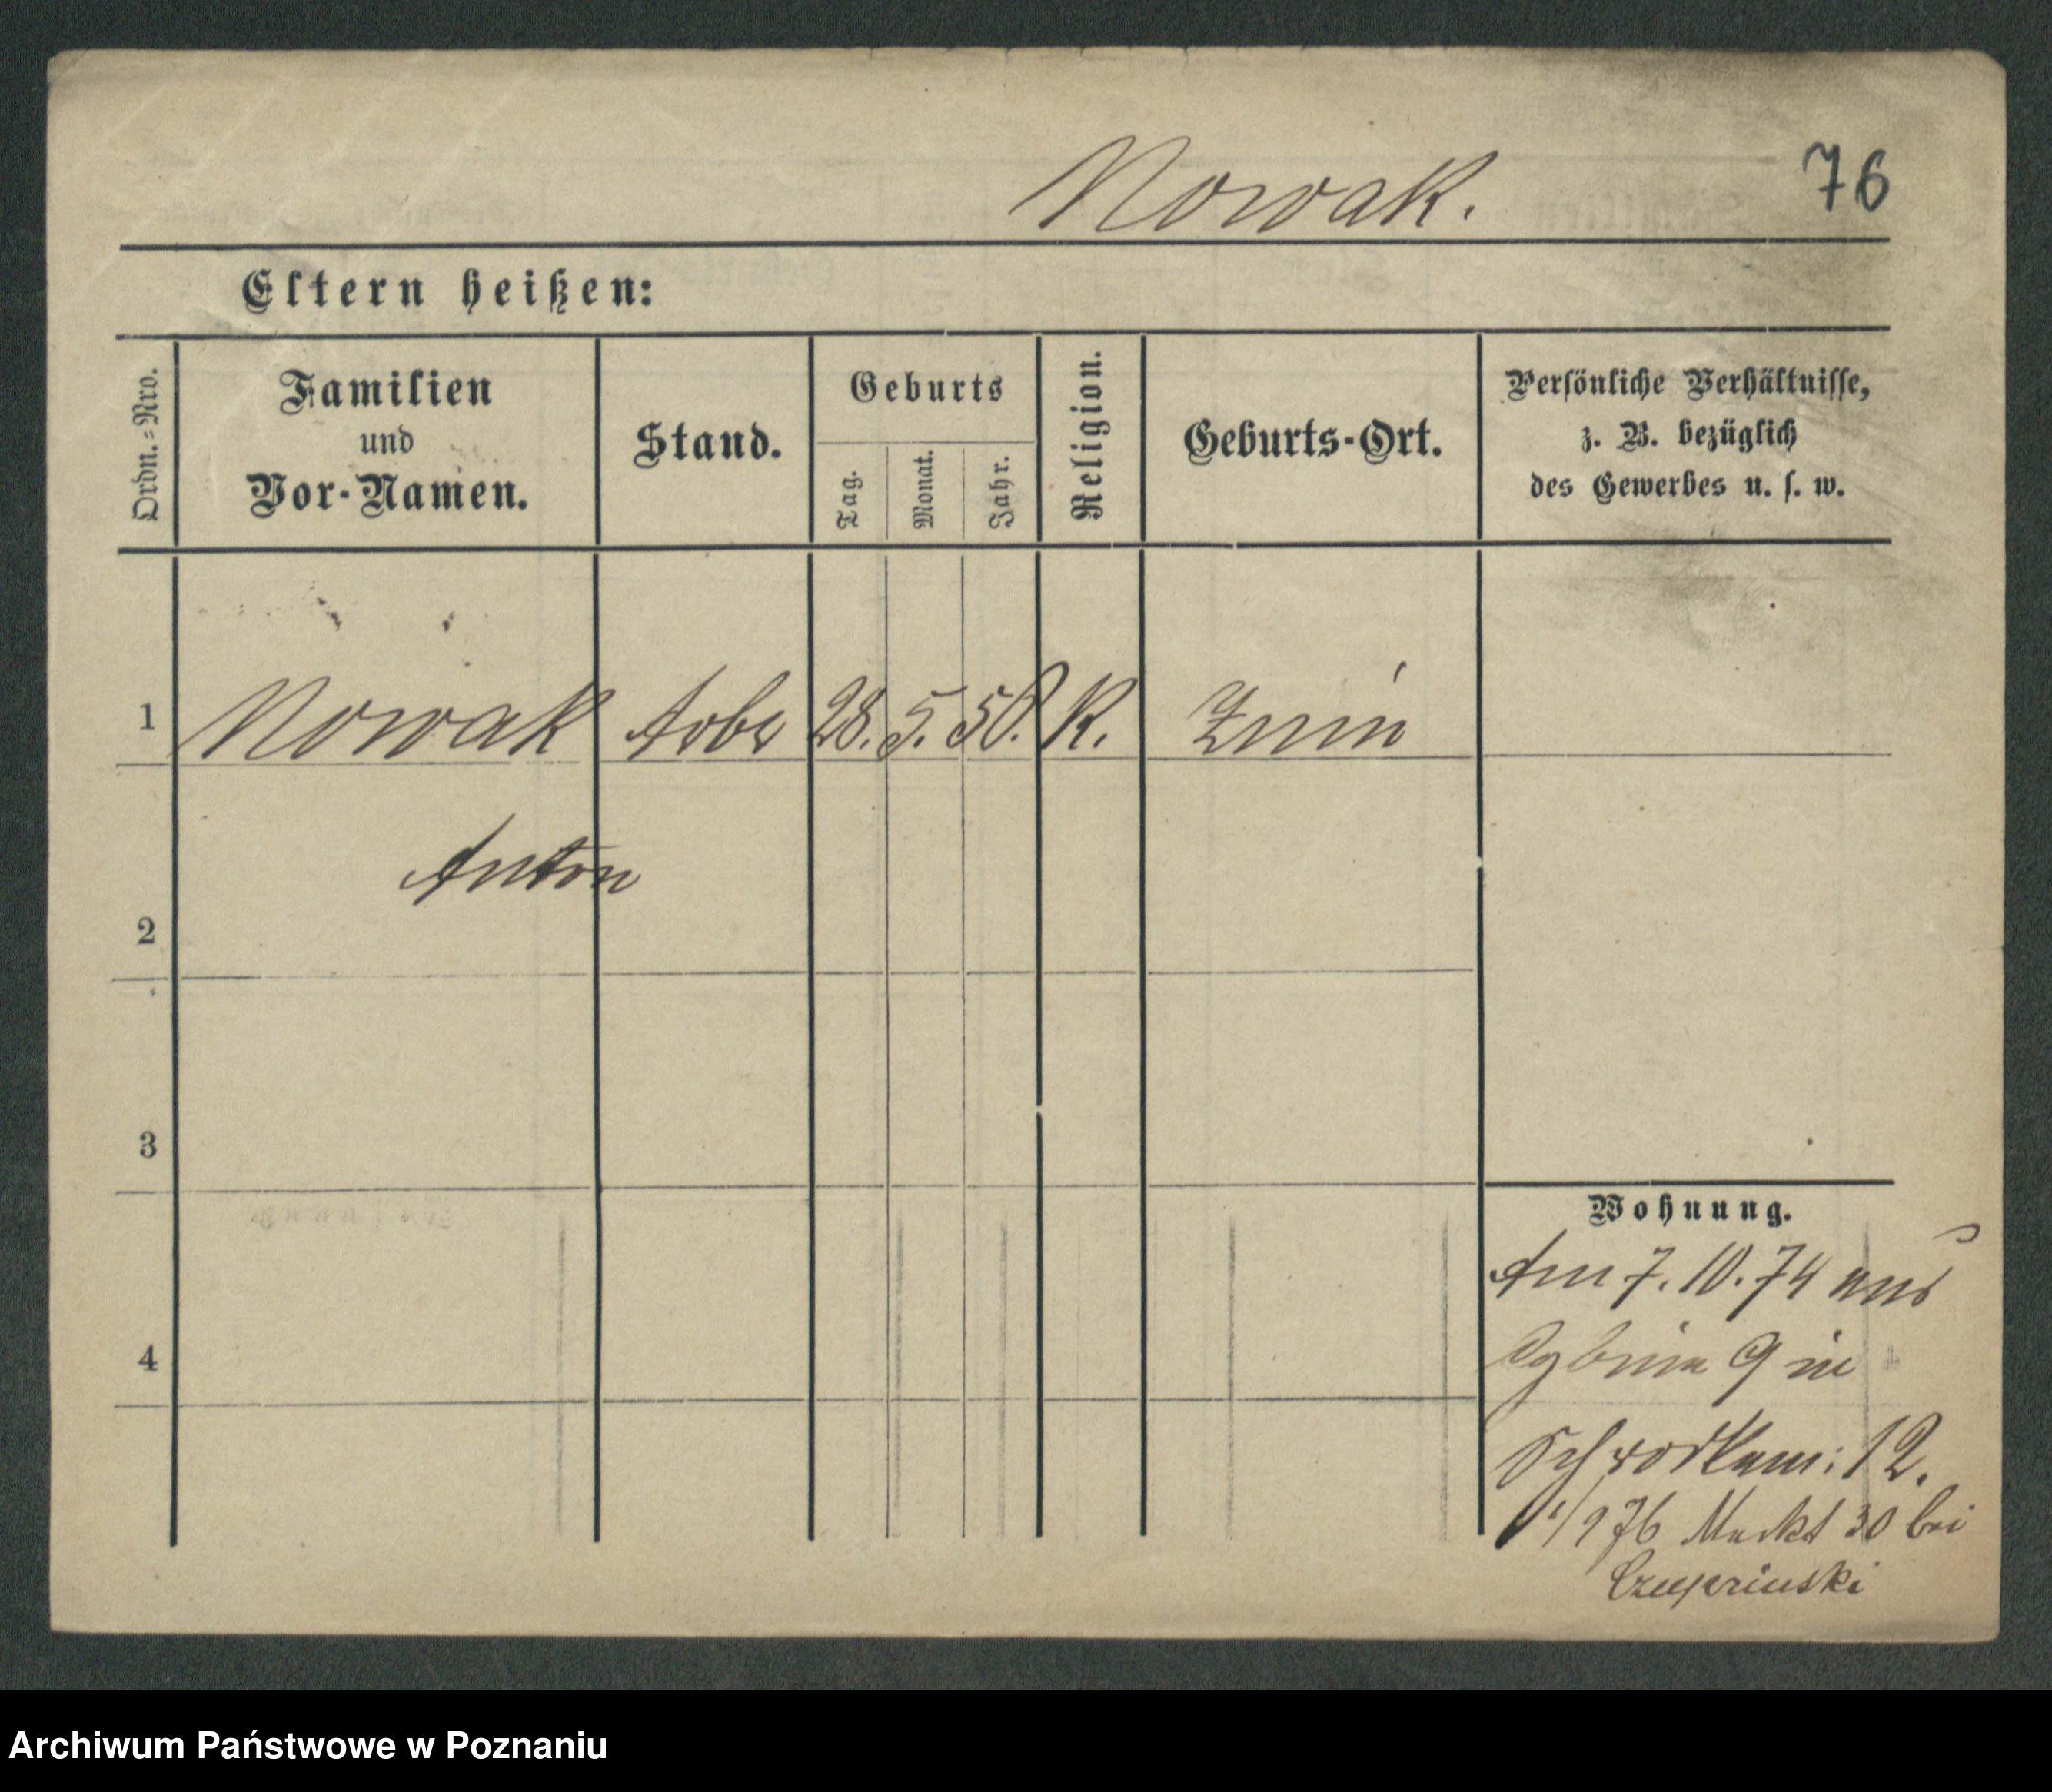 Nowak.
76
Eltern heißen:
Ordn.=Nro.
Familien
und
Vor-Namen.
Stand.
Geburts
Tag.
Monat.
Jahr.
Religion.
Geburts-Ort.
Persönliche Verhältnisse,
z. B. bezüglich
des Gewerbes u. s. w.
1 Nowak Arbr 28. 5. 50. K. Znin
Anton
2
3
4
Wohnung.
Am 7. 10. 74 aus
9 in
12.
1/9 76 Markt 30 bei
Archiwum Państwowe w Poznaniu